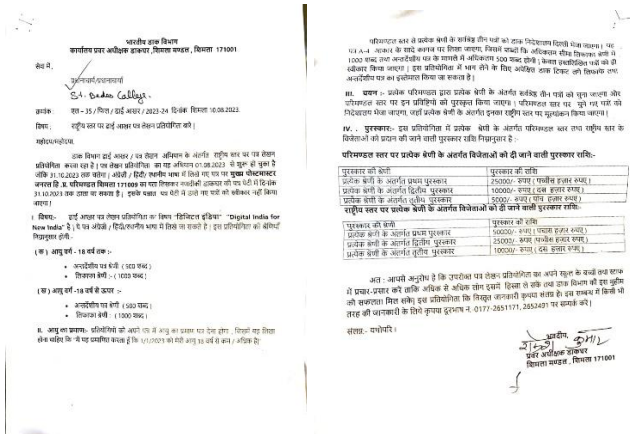 भारतीय डाक विभाग
कार्यालय प्रवर अधीक्षक डाकघर ,शिमला मण्डल , शिमला 171001
सेवा में ,
प्रधानाचार्य/प्रधानाचार्या
St. Bedes College.
क्रमांक : एल-35 / फिल / ढाई अक्षर / 2023-24 दिनांक शिमला 10.08.2023.
विषय : राष्ट्रीय स्तर पर ढाई आखर पत्र लेखन प्रतियोगिता बारे |
महोदय/महोदया,
डाक विभाग ढाई अक्षर / पत्र लेखन अभियान के अंतर्गत राष्ट्रीय स्तर पर पत्र लेखन
प्रतियोगिता करा रहा है | पत्र लेखन प्रतियोगिता का यह अभियान 01.08.2023 से शुरू हो चुका है
जोकि 31.10.2023 तक चलेगा | अंग्रेजी / हिंदी/ स्थानीय भाषा में लिखे गए पत्र पर मुख्य पोस्टमास्टर
जनरल हि .प्र. परिमण्डल शिमला 171009 का पता लिखकर नजदीकी डाकघर की पत्र पेटी में दिनांक
31.10.2023 तक डाला जा सकता है | इसके पश्चात पत्र पेटी में डाले गए पत्रों को स्वीकार नहीं किया
जाएगा |
I विषय:- ढाई आखर पत्र लेखन प्रतियोगिता का विषय "डिजिटल इंडिया" "Digital India for
New India" है | ये पत्र अंग्रेजी / हिंदी/स्थानीय भाषा में लिखे जा सकते है | इस प्रतियोगिता की श्रेणियाँ
निम्नानुसार होगी:-
(क ) आयु वर्ग - 18 वर्ष तक :-
• अन्तर्देशीय पत्र श्रेणी ( 500 शब्द )
• लिफाफा श्रेणी :- ( 1000 शब्द )
(ख ) आयु वर्ग -18 वर्ष से ऊपर :-
• अन्तर्देशीय पत्र श्रेणी ( 500 शब्द )
• लिफाफा श्रेणी :- ( 1000 शब्द )
II. आयु का प्रमाण:- प्रतियोगियों को अपने पत्र में आयु का प्रमाण पत्र देना होगा , जिसमें यह लिखा
होना चाहिए कि "मैं यह प्रमाणित करता हूँ कि 1/1/2023 को मेरी आयु 18 वर्ष से कम / अधिक है|
परिमण्डल स्तर से प्रत्येक श्रेणी के सर्वश्रेष्ठ तीन पत्रों को डाक निदेशालय दिल्ली भेजा जाएगा |
पत्र A-4 आकार के सादे कागज पर लिखा जाएगा, जिसमें शब्दों कि अधिकतम सीमा लिफाफा श्रेणी में
1000 शब्द तथा अन्तर्देशीय पत्र के मामले में अधिकतम 500 शब्द होगी | केवल हस्तलिखित पत्रों को ही
स्वीकार किया जाएगा | इस प्रतियोगिता में भाग लेने के लिए अपेक्षित डाक टिकट लगे लिफाफे तथा
अन्तर्देशीय पत्र का इस्तेमाल किया जा सकता है |
III. चयन :- प्रत्येक परिमण्डल द्वारा प्रत्येक श्रेणी के अंतर्गत सर्वश्रेष्ठ तीन पत्रों को चुना जाएगा और
परिमण्डल स्तर पर इन प्रविष्टियों को पुरस्कृत किया जाएगा | परिमण्डल स्तर पर चुने गए पत्रों को
निदेशालय भेजा जाएगा, जहाँ प्रत्येक श्रेणी के अंतर्गत इनका राष्ट्रीय स्तर पर मूल्यांकन किया जाएगा |
IV. . पुरस्कार:- इस प्रतियोगिता में प्रत्येक श्रेणी के अंतर्गत परिमण्डल स्तर तथा राष्ट्रीय स्तर के
विजेताओं को प्रदान की जाने वाली पुरस्कार राशि निम्नानुसार है :-
परिमण्डल स्तर पर प्रत्येक श्रेणी के अंतर्गत विजेताओं को दी जाने वाली पुरस्कार राशि:-
पुरस्कार की श्रेणी पुरस्कार की राशि
प्रत्येक श्रेणी के अंतर्गत प्रथम पुरस्कार 25000/- रुपए ( पच्चीस हज़ार रुपए )
प्रत्येक श्रेणी के अंतर्गत द्वितीय पुरस्कार 10000/- रुपए ( दस हज़ार रुपए )
प्रत्येक श्रेणी के अंतर्गत तृतीय पुरस्कार 5000/- रुपए ( पांच हज़ार रुपए )
राष्ट्रीय स्तर पर प्रत्येक श्रेणी के अंतर्गत विजेताओं को दी जाने वाली पुरस्कार राशि:-
पुरस्कार की श्रेणी पुरस्कार की राशि
प्रत्येक श्रेणी के अंतर्गत प्रथम पुरस्कार 50000/- रुपए ( पचास हज़ार रुपए )
प्रत्येक श्रेणी के अंतर्गत द्वितीय पुरस्कार 25000/- रुपए ( पच्चीस हज़ार रुपए )
प्रत्येक श्रेणी के अंतर्गत तृतीय पुरस्कार 10000/- रुपए ( दस हज़ार रुपए )
अत : आपसे अनुरोध है कि उपरोक्त पत्र लेखन प्रतियोगिता का अपने स्कूल के बच्चों तथा स्टाफ
में प्रचार-प्रसार करें ताकि अधिक से अधिक लोग इसमें हिस्सा ले सकें तथा डाक विभाग की इस मुहीम
को सफलता मिल सके| इस प्रतियोगिता कि विस्तृत जानकारी कृपया संलग्न है| इस सम्बन्ध में किसी भी
तरह की जानकारी के लिये कृपया दूरभाष न. 0177-2651171, 2652491 पर सम्पर्क करें |
संलग्न:- यथोपरि |
भवदीय,
प्रवर अधीक्षक डाकघर
शिमला मण्डल , शिमला 171001